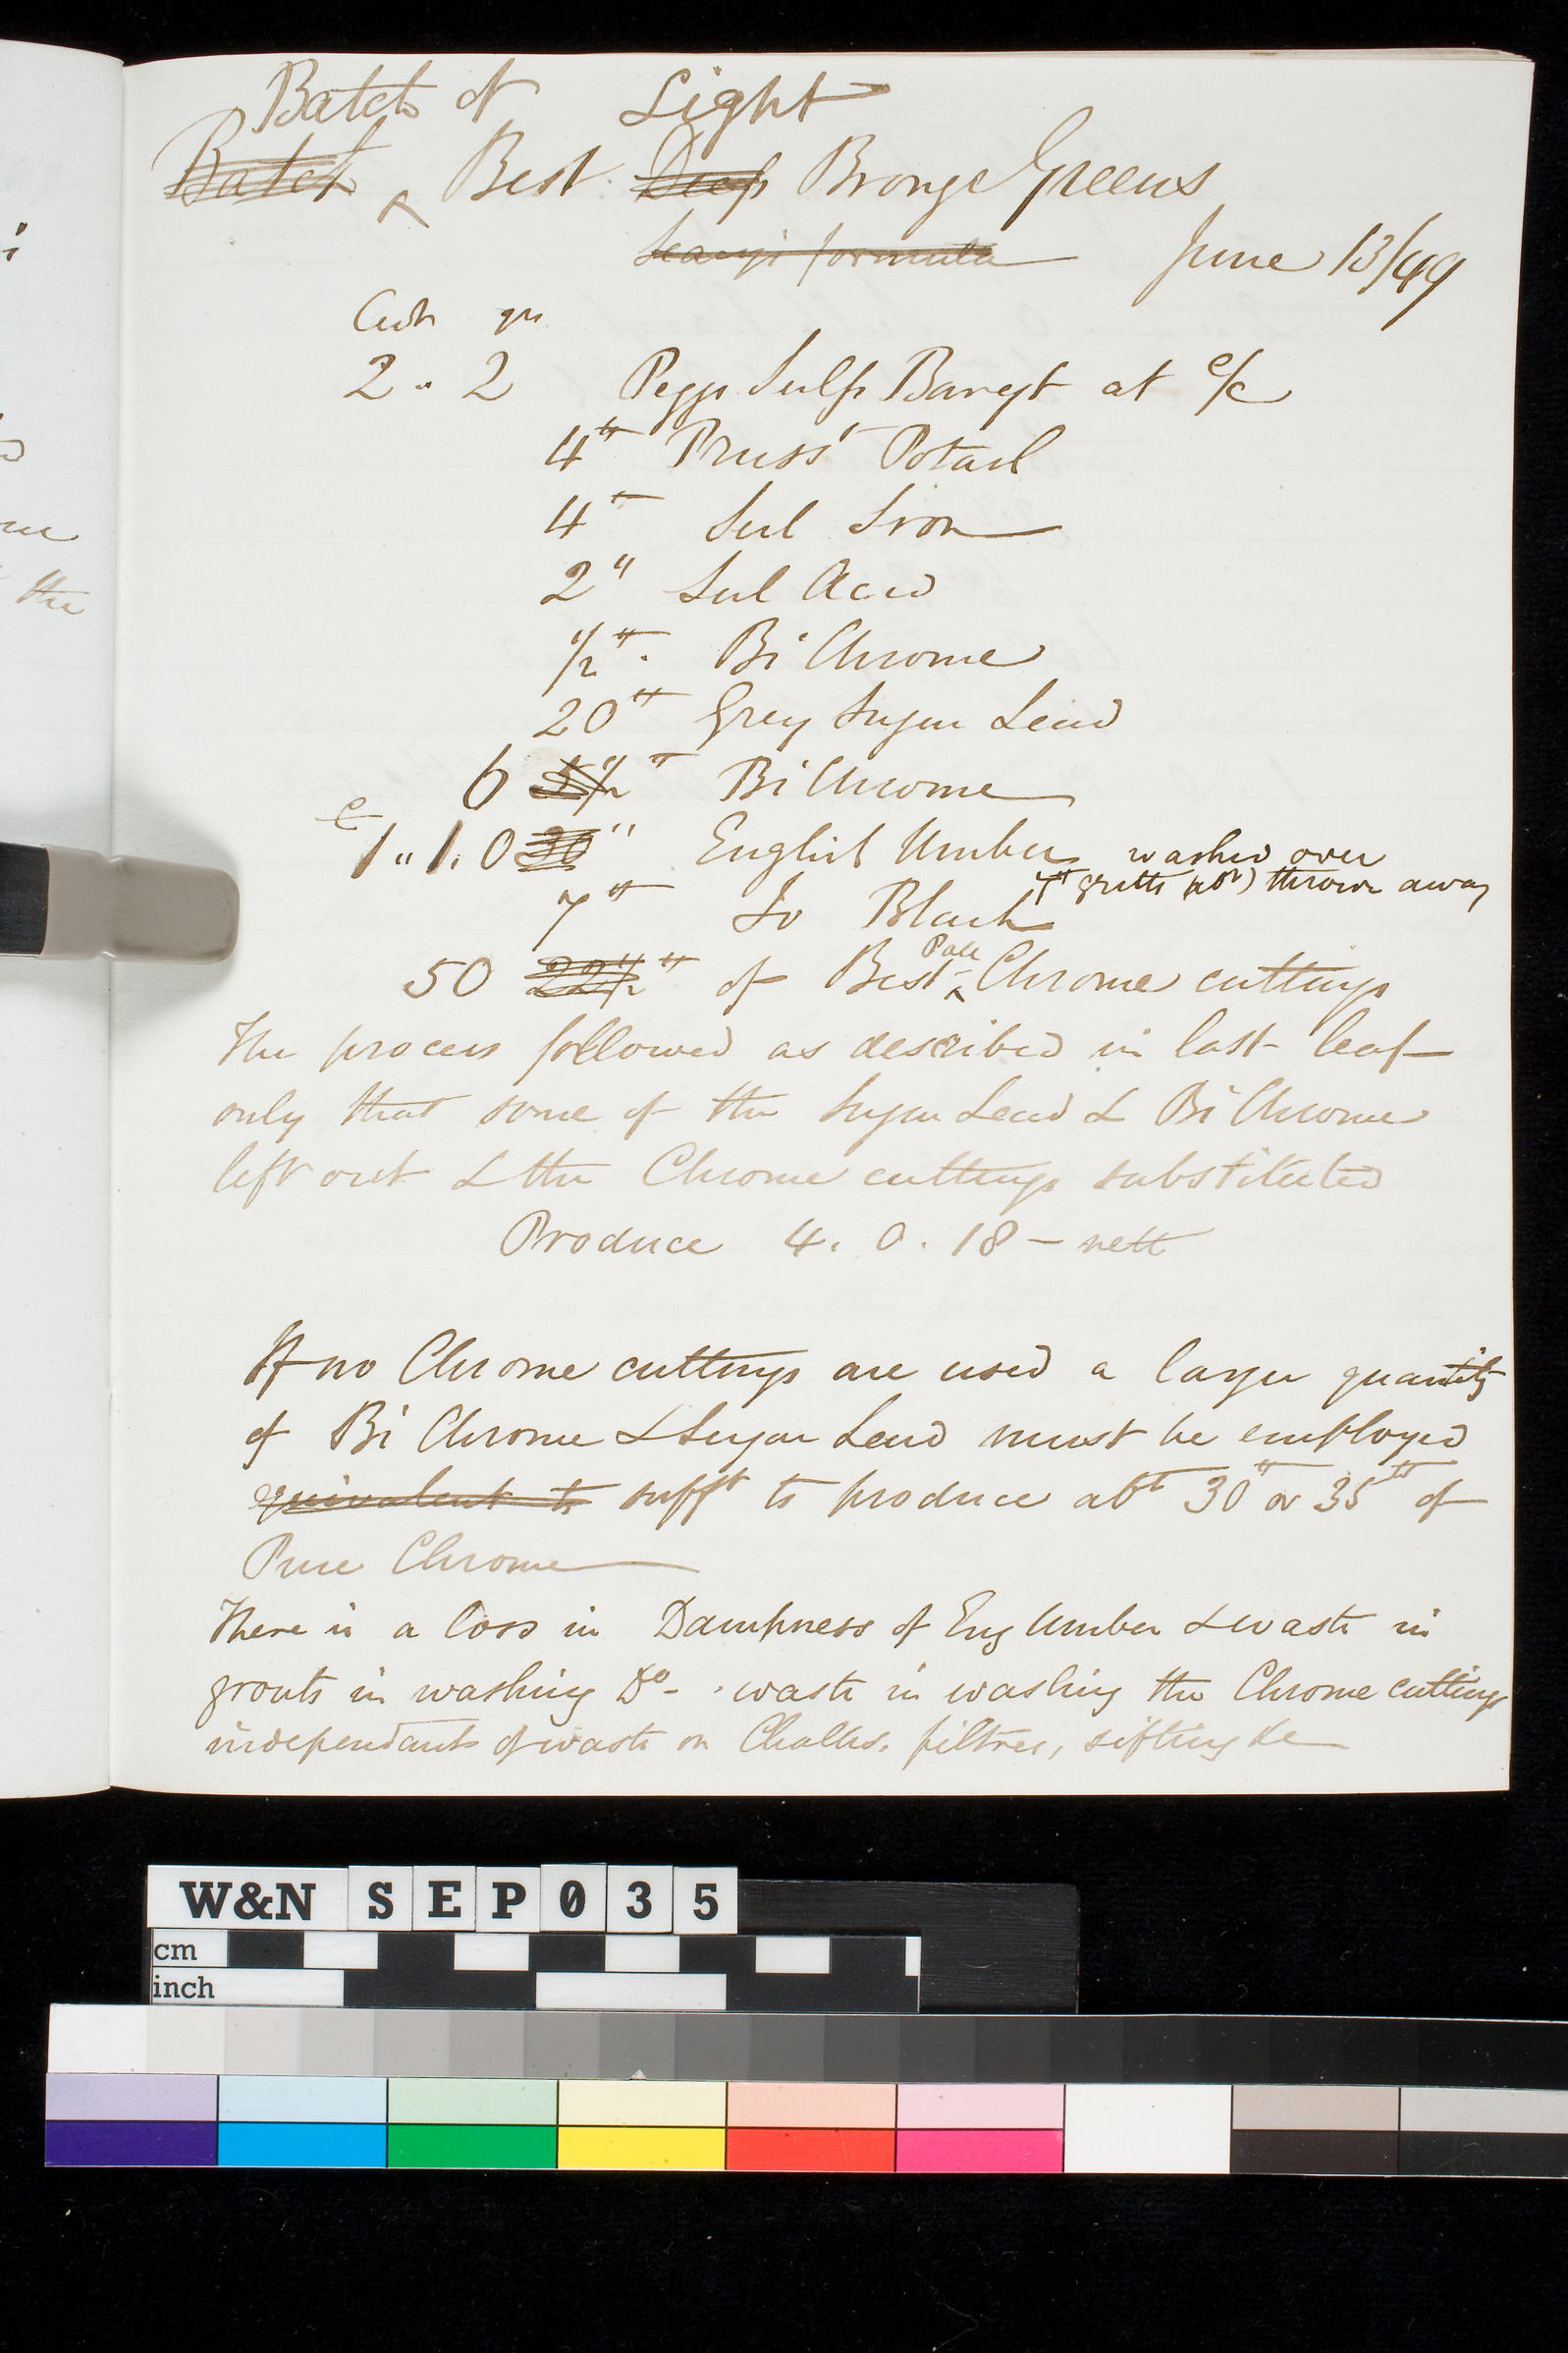 Batch of Light
Batch ^ Best Deep Bronze Greens
Seary's formula June 13/49
Cwts qrs
2 " 2 Peggs Sulp Baryt at c/c
4 lb Pruss Potash
4 lb Sul Iron
2 " Sul Acid
1/2 lb. Bi Chrome
20 lb Grey Sugar Lead
6 5 1/2 " Bi Chrome
c
1 " 1. 0 30 " English Umber washed over
gritts abt) thrown away
7 lb Black
Pale
50 22 1/2 lb of Best ^ Chrome cuttings
The process followed as described in last leaf
only that some of the Sugar Lead & Bi Chrome
left out & the Chrome cuttings substituted
Produce 4. 0. 18 - nett
If no Chrome cuttings are used a larger quantity
of Bi Chrome & Sugar Lead must be employed
equivalent to sufft to produce abt 30 lb or 35 lb of
Pure Chrome
There is a loss in Dampness of Eng Umber & waste in
grouts in washing Do - . waste in washing the Chrome cuttings
independant of waste on Chalks, filtres, sifting &c
the
W&N SEP035
cm
inch